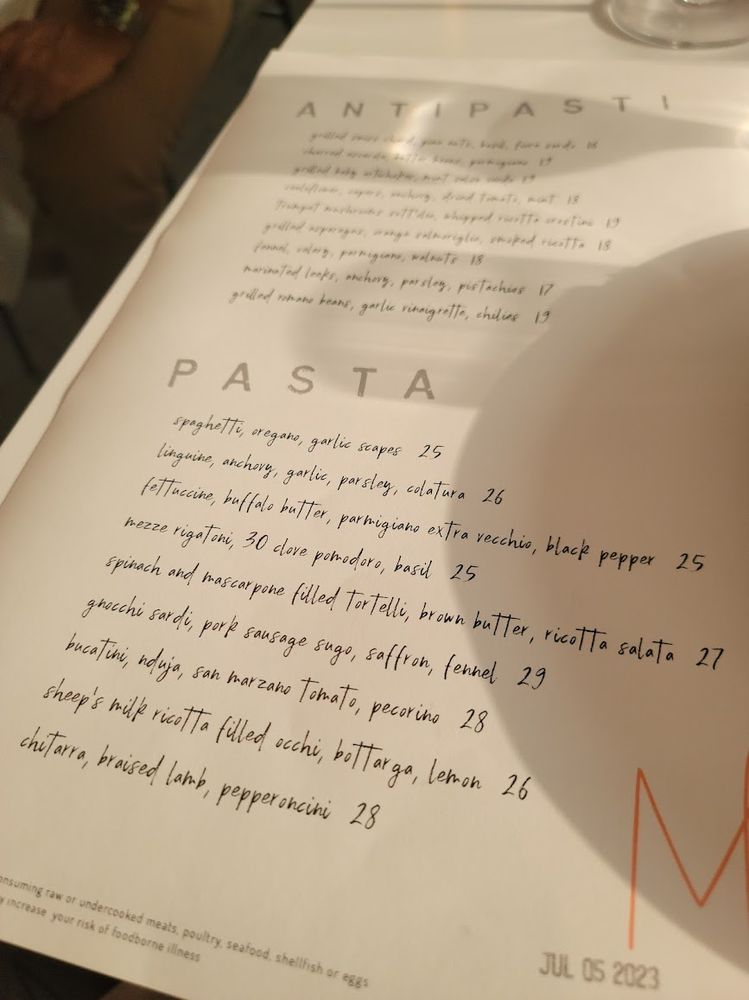 ANTIPASTI
grilled swiss chard, pine nuts, basil, fiore sardo 18
charred escarole, butter beans, parmigiano 19
grilled baby artichokes, mint salsa verde 19
cauliflower, capers, anchovy, dried tomato, mint 18
trumpet mushrooms sott'olio, whipped ricotta crostini 19
grilled asparagus, orange salmoriglio, smoked ricotta 18
fennel, celery, parmigiano, walnuts 18
marinated leeks, anchovy, parsley, pistachios 17
grilled romano beans, garlic vinaigrette, chilies 19
PASTA
spaghetti, oregano, garlic scapes 25
linguine, anchovy, garlic, parsley, colatura 26
fettuccine, buffalo butter, parmigiano extra vecchio, black pepper 25
mezze rigatoni, 30 clove pomodoro, basil 25
spinach and mascarpone filled tortelli, brown butter, ricotta salata 27
gnocchi sardi, pork sausage sugo, saffron, fennel 29
bucatini, nduja, san marzano tomato, pecorino 28
sheep's milk ricotta filled occhi, bottarga, lemon 26
chitarra, braised lamb, pepperoncini 28
M
onsuming raw or undercooked meats, poultry, seafood, shellfish or eggs
y increase your risk of foodborne illness
JUL 05 2023